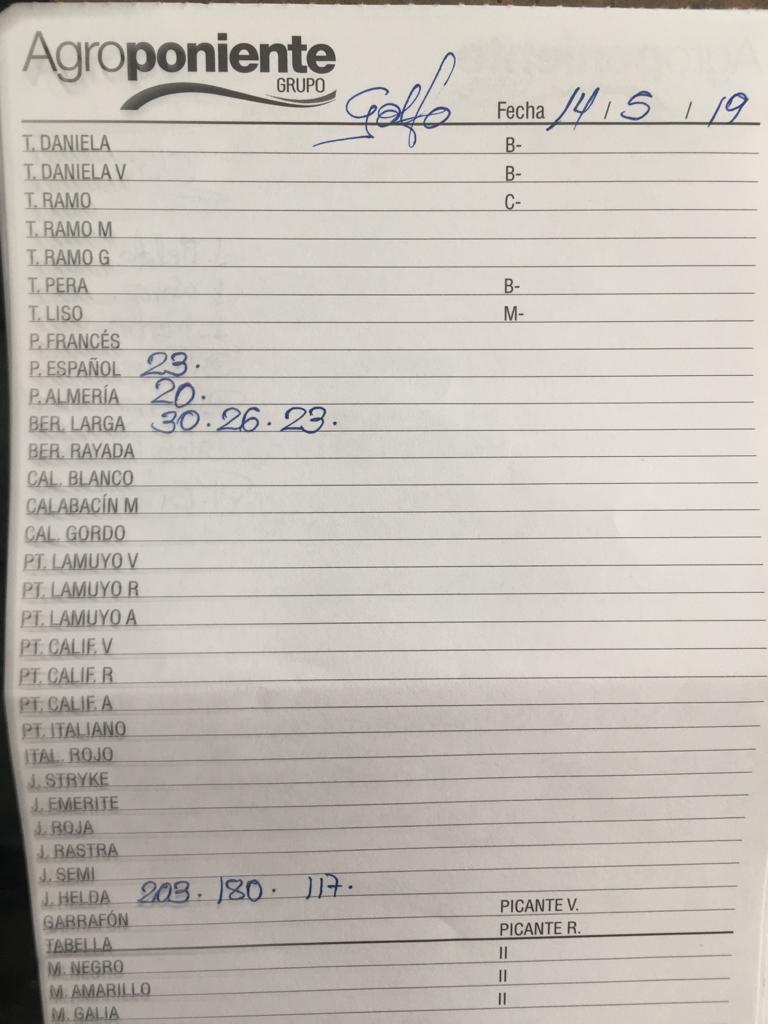 Agroponiente
GRUPO
Golfo Fecha 14 / 5 / 19
T. DANIELA B-
T. DANIELA V B-
T. RAMO C-
T. RAMO M
T. RAMO G
T. PERA B-
T. LISO M-
P. FRANCÉS
P. ESPAÑOL 23.
P. ALMERÍA 20.
BER. LARGA 30. 26. 23.
BER. RAYADA
CAL. BLANCO
CALABACÍN M
CAL. GORDO
PT. LAMUYO V
PT. LAMUYO R
PT. LAMUYO A
PT. CALIF. V
PT. CALIF. R
PT. CALIF. A
PT. ITALIANO
ITAL. ROJO
J. STRYKE
J. EMERITE
J. ROJA
J. RASTRA
J. SEMI
J. HELDA 203. 180. 117.
GARRAFÓN PICANTE V.
TABELLA PICANTE R.
M. NEGRO II
M. AMARILLO II
M. GALIA II